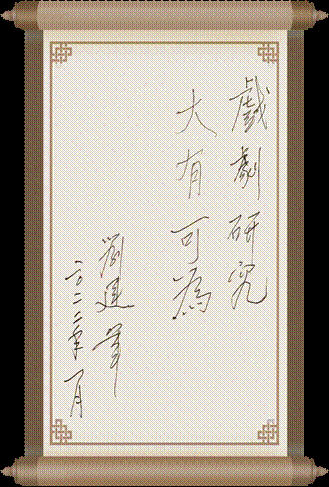 戲劇研究
大有可為
劉
二〇二二年一月